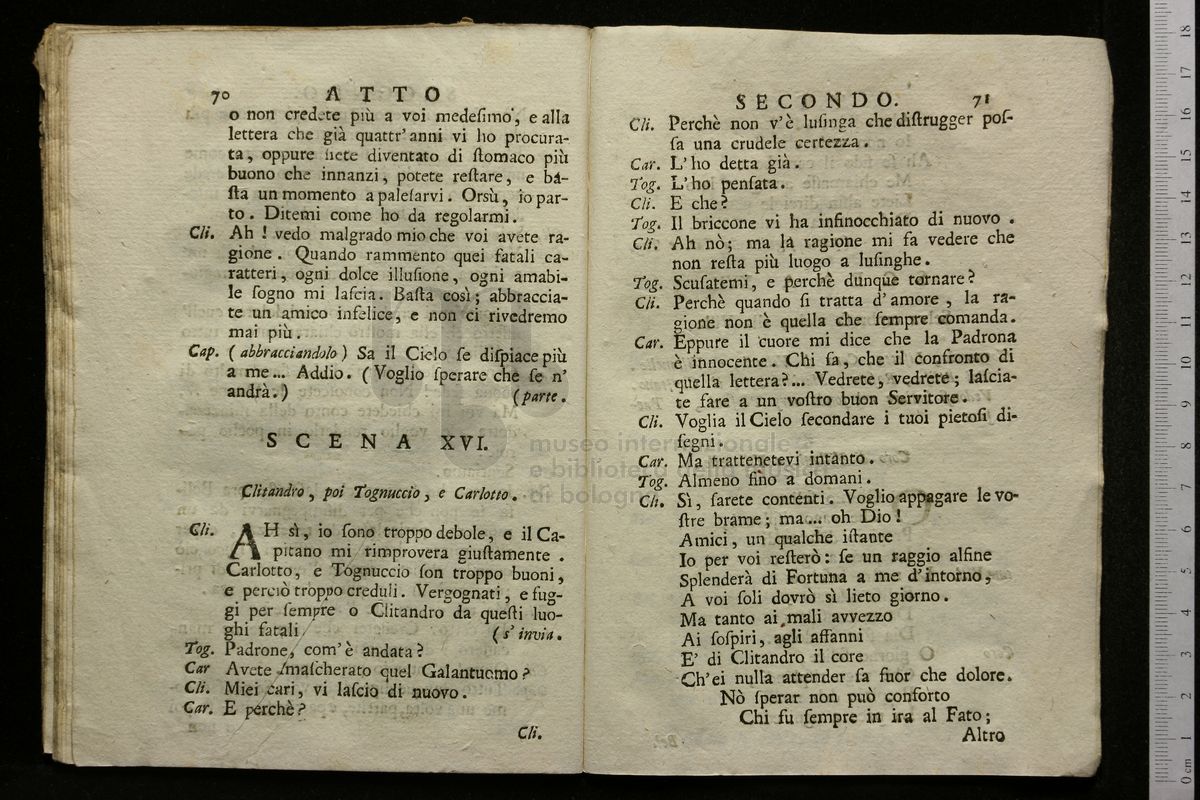 70 ATTO
o non credete più a voi medeſimo, e alla
lettera che già quattr' anni vi ho procura-
ta, oppure ſiete diventato di ſtomaco più
buono che innanzi, potete reſtare, e ba-
ſta un momento a paleſarvi. Orsù, io par-
to. Ditemi come ho da regolarmi.
Cli. Ah! vedo malgrado mio che voi avete ra-
gione. Quando rammento quei fatali ca-
ratteri, ogni dolce illuſione, ogni amabi-
le ſogno mi laſcia. Baſta così; abbraccia-
te un amico infelice, e non ci rivedremo
mai più.
Cap. (abbracciandolo) Sa il Cielo ſe diſpiace più
a me... Addio. (Voglio ſperare che ſe n'
andrà.) (parte.
SCENA XVI.
Clitandro, poi Tognuccio, e Carlotto.
Cli. AH sì, io ſono troppo debole, e il Ca-
pitano mi rimprovera giuſtamente.
Carlotto, e Tognuccio ſon troppo buoni,
e perciò troppo creduli. Vergognati, e fug-
gi per ſempre o Clitandro da queſti luo-
ghi fatali (s' invia.
Tog. Padrone, com' è andata?
Car Avete ſmaſcherato quel Galantuomo?
Cli. Miei cari, vi laſcio di nuovo.
Car. E perchè?
Cli.
SECONDO. 71
Cli. Perchè non v'è luſinga che diſtrugger poſ-
ſa una crudele certezza.
Car. L' ho detta già.
Tog. L' ho penſata.
Cli. E che?
Tog. Il briccone vi ha infinocchiato di nuovo.
Cli. Ah nò; ma la ragione mi fa vedere che
non reſta più luogo a luſinghe.
Tog. Scuſatemi, e perchè dunque tornare?
Cli. Perchè quando ſi tratta d' amore, la ra-
gione non è quella che ſempre comanda.
Car. Eppure il cuore mi dice che la Padrona
è innocente. Chi ſa, che il confronto di
quella lettera?... Vedrete, vedrete; laſcia-
te fare a un voſtro buon Servitore.
Cli. Voglia il Cielo ſecondare i tuoi pietoſi di-
ſegni.
Car. Ma trattenetevi intanto.
Tog. Almeno fino a domani.
Cli. Sì, ſarete contenti. Voglio appagare le vo-
ſtre brame; ma... oh Dio!
Amici, un qualche iſtante
Io per voi reſterò: ſe un raggio alfine
Splenderà di Fortuna a me d' intorno,
A voi ſoli dovrò sì lieto giorno.
Ma tanto ai mali avvezzo
Ai ſoſpiri, agli affanni
E' di Clitandro il core
Ch'ei nulla attender ſa fuor che dolore.
Nò ſperar non può conforto
Chi fu ſempre in ira al Fato;
Altro
museo internazionale
e biblioteca della musica
di bologna
0 cm 1 2 3 4 5 6 7 8 9 10 11 12 13 14 15 16 17 18